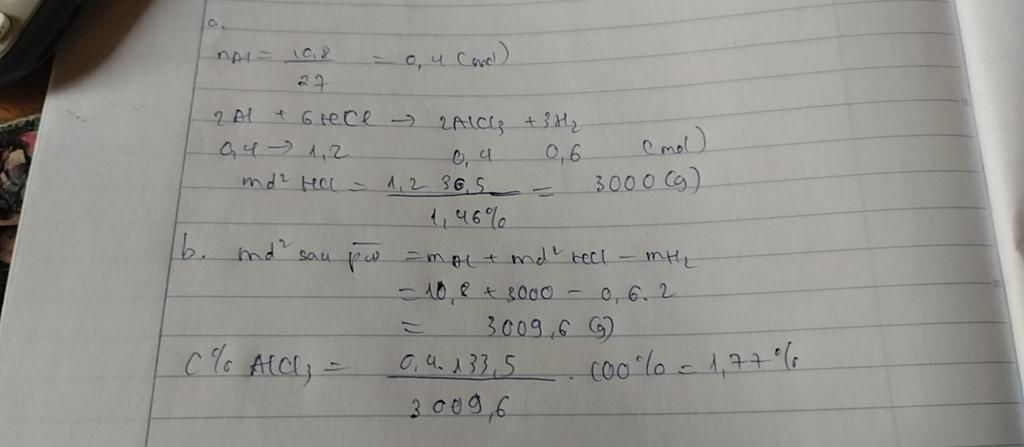 a.
nAl = 10,8 / 27 = 0,4 (mol)
2Al + 6HCl → 2AlCl3 + 3H2
0,4 → 1,2 0,4 0,6 (mol)
md² HCl = 1,2 . 36,5 / 1,46% = 3000 (g)
b. md² sau pư = mAl + md² HCl - mH2
= 10,8 + 3000 - 0,6 . 2
= 3009,6 (g)
C% AlCl3 = 0,4 . 133,5 / 3009,6 . 100% = 1,77%